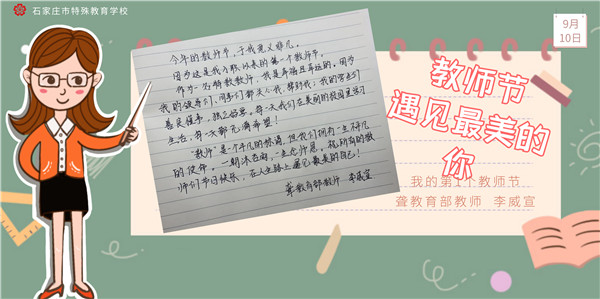 石家庄市特殊教育学校
9月
10日
今年的教师节,于我意义非凡。
因为这是我入职以来的第一个教师节。
作为一名特教教师,我是幸福且幸运的。因为
我的领导们、同事们都关心我、帮助我;我的学生们
善良懂事、独立好学。每一天我们在美丽的校园里学习
生活,每一天都充满希望!
“教师”是一个平凡的称谓,但我们拥有一生不凡
的使命。一朝沐杏雨,一生念师恩。祝所有的教
师们节日快乐,在人生路上遇见最美的自己!
聋教育部教师 李威宣
教师节
遇见最美的
你
我的第1个教师节
聋教育部教师 李威宣